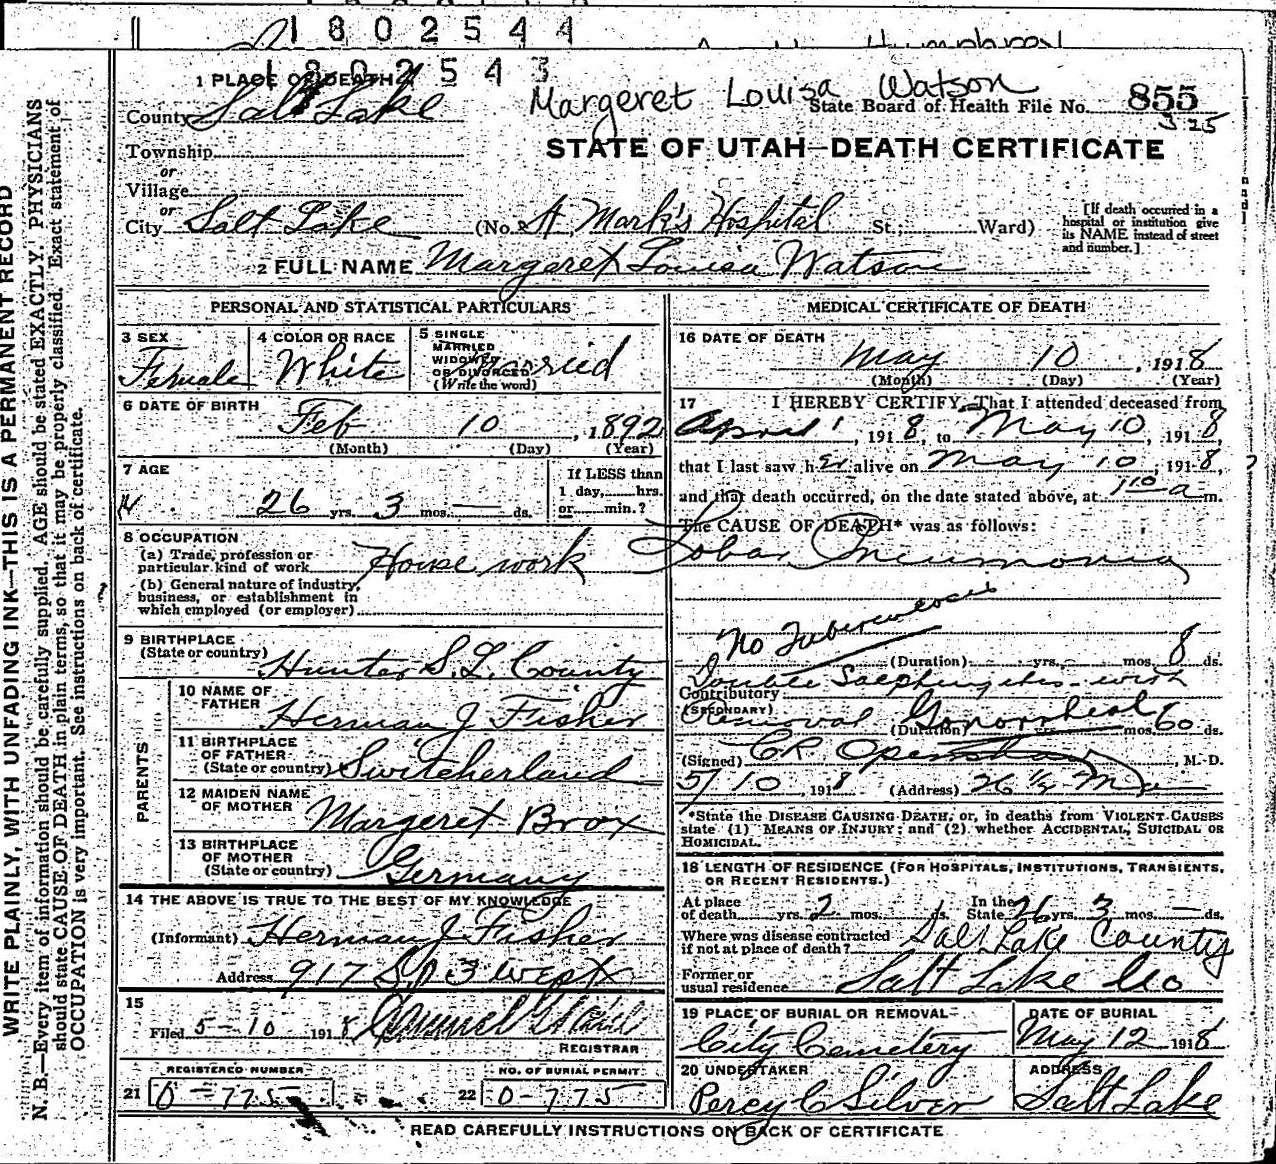 1802544
Humphrey
1802543
1 PLACE OF DEATH
Margeret Louisa Watson
County Salt Lake
State Board of Health File No. 855
325
Township
STATE OF UTAH—DEATH CERTIFICATE
or
Village
or
City Salt Lake (No. St Mark's Hospital St.; Ward)
[If death occurred in a
hospital or institution give
its NAME instead of street
and number.]
2 FULL NAME Margaret Louisa Watson
PERSONAL AND STATISTICAL PARTICULARS
3 SEX
Female
4 COLOR OR RACE
White
5 SINGLE
MARRIED
WIDOWED
OR DIVORCED
(Write the word)
Marreid
6 DATE OF BIRTH
Feb 10, 1892
(Month) (Day) (Year)
7 AGE
26 yrs. 3 mos. — ds.
If LESS than
1 day, hrs.
or min.?
8 OCCUPATION
(a) Trade, profession or
particular kind of work House work
(b) General nature of industry,
business, or establishment in
which employed (or employer)
9 BIRTHPLACE
(State or country)
Hunter S.L. County
PARENTS
10 NAME OF
FATHER
Herman J Fisher
11 BIRTHPLACE
OF FATHER
(State or country) Switcherland
12 MAIDEN NAME
OF MOTHER
Margeret Brox
13 BIRTHPLACE
OF MOTHER
(State or country) Germany
14 THE ABOVE IS TRUE TO THE BEST OF MY KNOWLEDGE
(Informant) Herman J Fisher
Address 917 So 3 West
15
Filed 5-10 1918
REGISTRAR
REGISTERED NUMBER
21 0-775
NO. OF BURIAL PERMIT
22 0-775
MEDICAL CERTIFICATE OF DEATH
16 DATE OF DEATH
May 10, 1918
(Month) (Day) (Year)
17 I HEREBY CERTIFY, That I attended deceased from
April 1, 1918, to May 10, 1918,
that I last saw her alive on May 10, 1918,
and that death occurred, on the date stated above, at 110 a m.
The CAUSE OF DEATH* was as follows:
Lobar Pneumonia
No Tuberculosis
(Duration) yrs. mos. 8 ds.
Double Salphingitis with
Contributory
(SECONDARY)
Removal Gonorrheal
(Duration) yrs. mos. 60 ds.
(Signed) C R Openshaw, M. D.
5/10, 1918 (Address) 26 1/2 Ma
*State the DISEASE CAUSING DEATH, or, in deaths from VIOLENT CAUSES
state (1) MEANS OF INJURY; and (2) whether ACCIDENTAL, SUICIDAL OR
HOMICIDAL.
18 LENGTH OF RESIDENCE (FOR HOSPITALS, INSTITUTIONS, TRANSIENTS,
OR RECENT RESIDENTS.)
At place
of death yrs. 2 mos. ds.
In the
State 26 yrs. 3 mos. — ds.
Where was disease contracted
if not at place of death? Salt Lake County
Former or
usual residence Salt Lake Co
19 PLACE OF BURIAL OR REMOVAL
City Cemetery
DATE OF BURIAL
May 12 1918
20 UNDERTAKER
Percy C Silver
ADDRESS
Salt Lake
READ CAREFULLY INSTRUCTIONS ON BACK OF CERTIFICATE
WRITE PLAINLY, WITH UNFADING INK—THIS IS A PERMANENT RECORD
N. B.—Every item of information should be carefully supplied. AGE should be stated EXACTLY. PHYSICIANS
should state CAUSE OF DEATH in plain terms, so that it may be properly classified. Exact statement of
OCCUPATION is very important. See instructions on back of certificate.